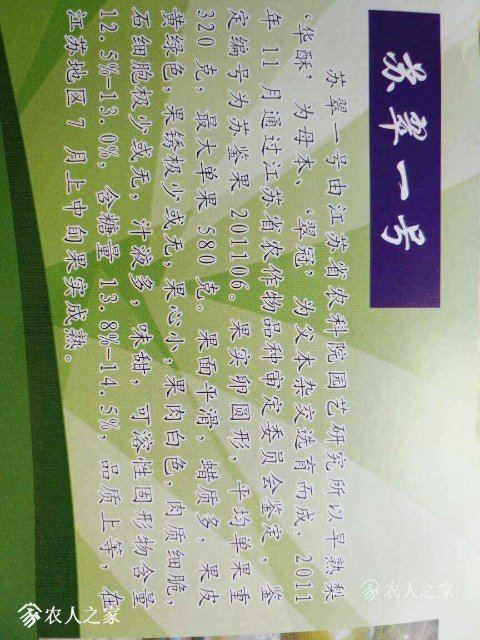 苏翠一号
苏翠一号由江苏省农科院园艺研究所以早熟梨
‘华酥’为母本、‘翠冠’为父本杂交选育而成，2011
年 11 月通过江苏省农作物品种审定委员会鉴定，鉴
定编号为苏鉴果 201106。果实卵圆形，平均单果重
320 克，最大单果 580 克。果面平滑，蜡质多，果皮
黄绿色，果锈极少或无，果心小，果肉白色，肉质细脆，
石细胞极少或无，汁液多，味甜，可溶性固形物含量
12.5%-13.0%，含糖量 13.8%-14.5%，品质上等，在
江苏地区 7 月上中旬果实成熟。
农人之家
农人之家
农人之家